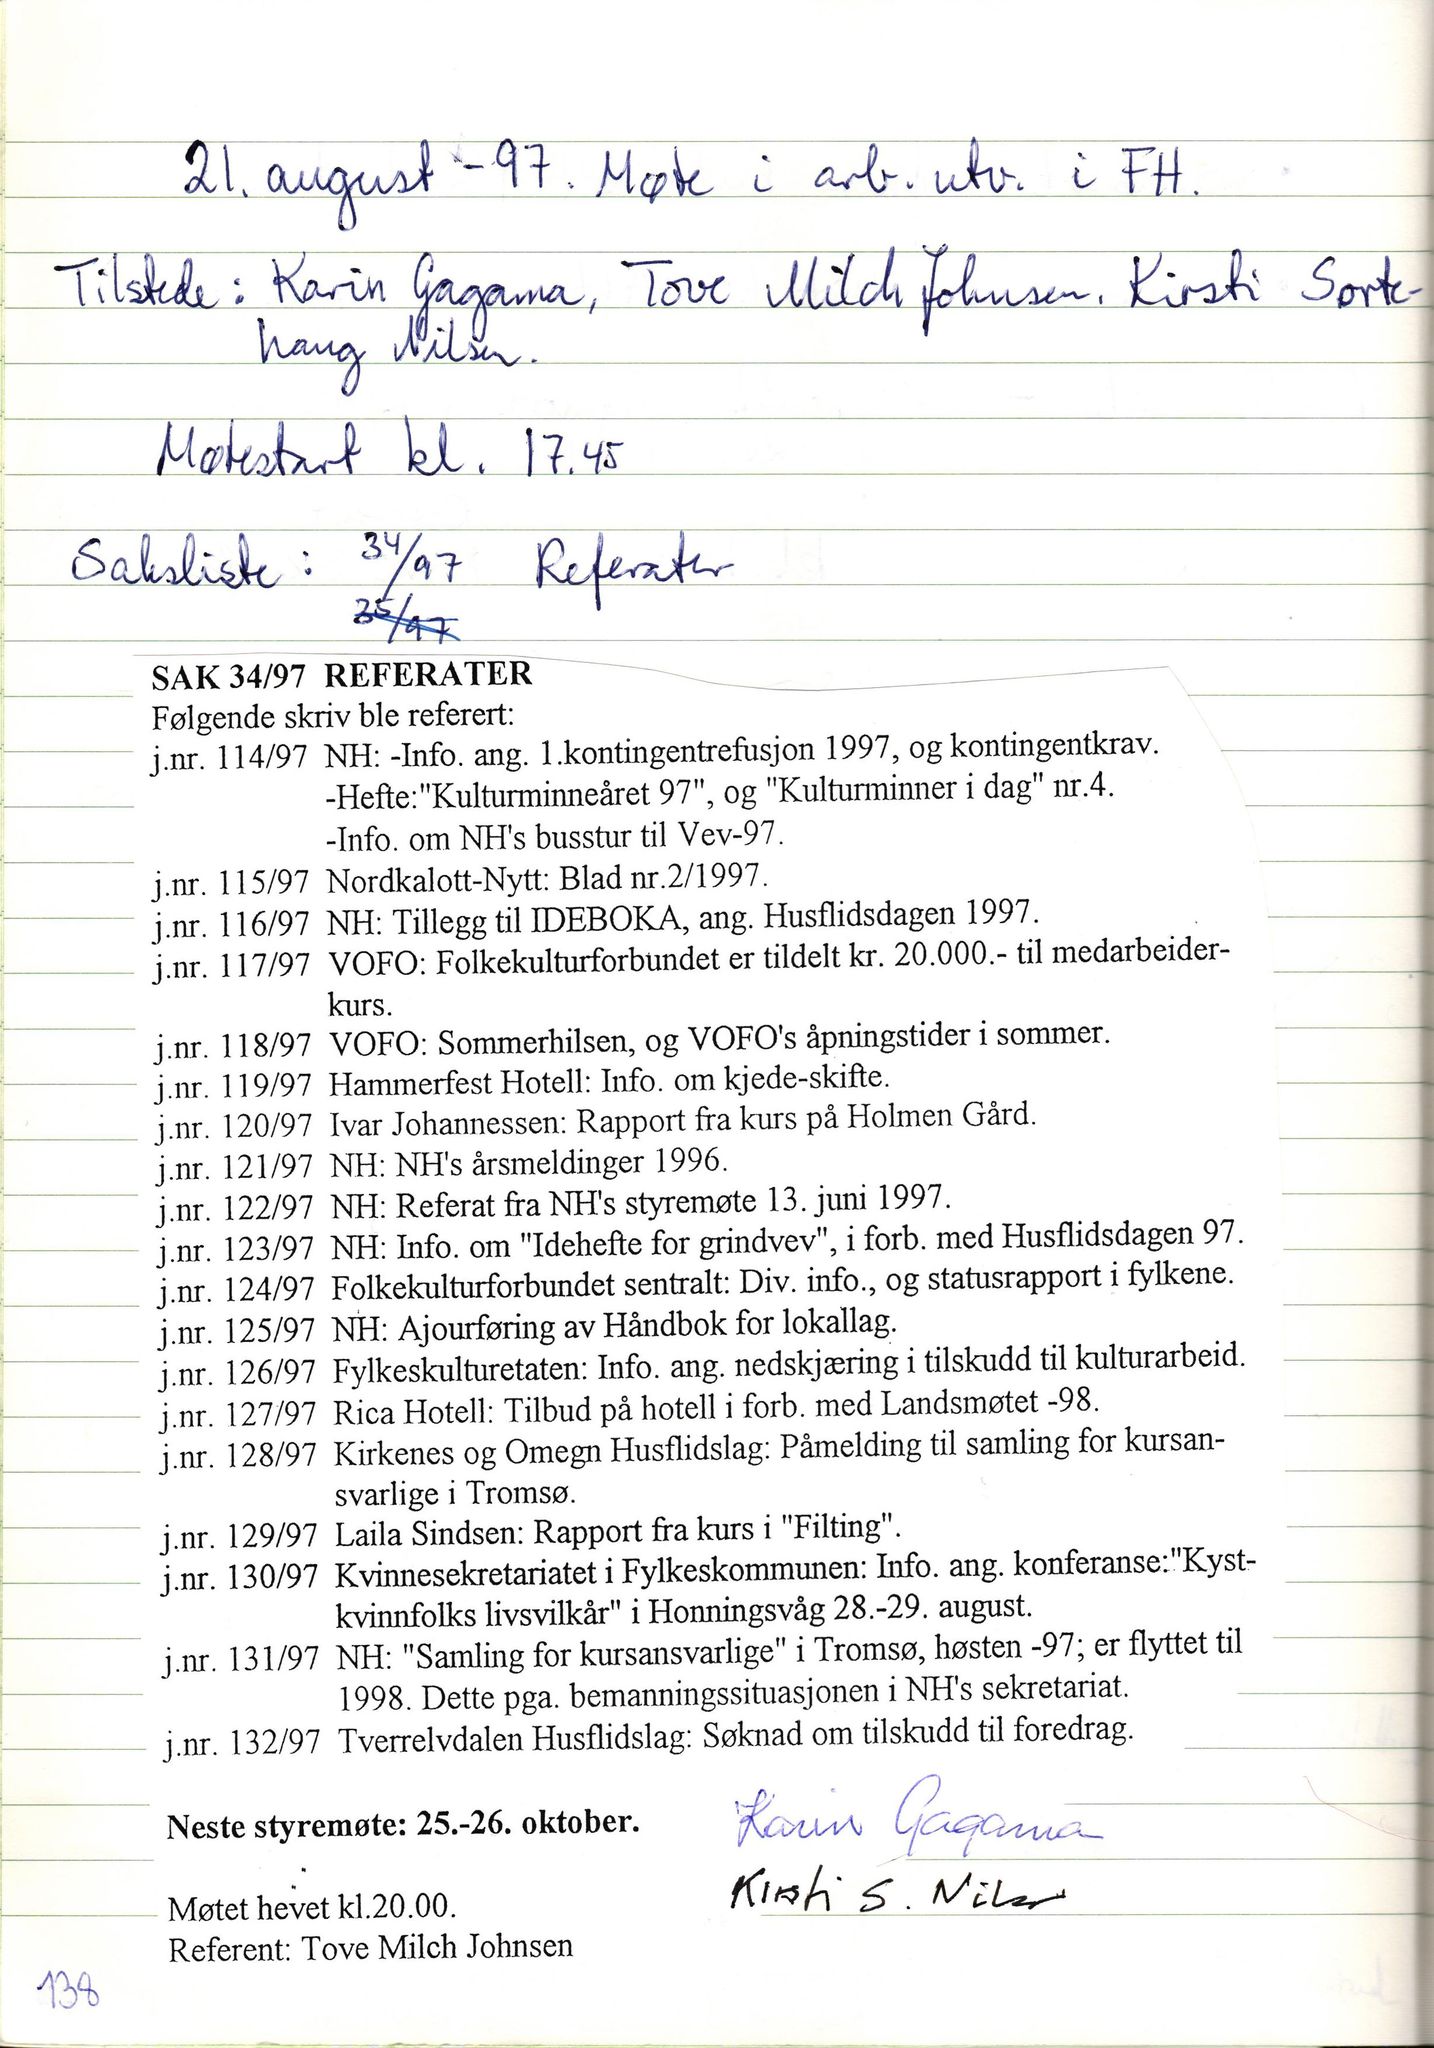 21. august -97. Møte i arb. utv. i FH.
Tilstede: Karin Gagama, Tove Milch Johnsen. Kirsti Sorte-
haug Nilsen.
Møtestart kl. 17.45
Saksliste: 34/97 Referater
35/97
SAK 34/97 REFERATER
Følgende skriv ble referert:
j.nr. 114/97 NH: -Info. ang. 1.kontingentrefusjon 1997, og kontingentkrav.
-Hefte:"Kulturminneåret 97", og "Kulturminner i dag" nr.4.
-Info. om NH's busstur til Vev-97.
j.nr. 115/97 Nordkalott-Nytt: Blad nr.2/1997.
j.nr. 116/97 NH: Tillegg til IDEBOKA, ang. Husflidsdagen 1997.
j.nr. 117/97 VOFO: Folkekulturforbundet er tildelt kr. 20.000.- til medarbeider-
kurs.
j.nr. 118/97 VOFO: Sommerhilsen, og VOFO's åpningstider i sommer.
j.nr. 119/97 Hammerfest Hotell: Info. om kjede-skifte.
j.nr. 120/97 Ivar Johannessen: Rapport fra kurs på Holmen Gård.
j.nr. 121/97 NH: NH's årsmeldinger 1996.
j.nr. 122/97 NH: Referat fra NH's styremøte 13. juni 1997.
j.nr. 123/97 NH: Info. om "Idehefte for grindvev", i forb. med Husflidsdagen 97.
j.nr. 124/97 Folkekulturforbundet sentralt: Div. info., og statusrapport i fylkene.
j.nr. 125/97 NH: Ajourføring av Håndbok for lokallag.
j.nr. 126/97 Fylkeskulturetaten: Info. ang. nedskjæring i tilskudd til kulturarbeid.
j.nr. 127/97 Rica Hotell: Tilbud på hotell i forb. med Landsmøtet -98.
j.nr. 128/97 Kirkenes og Omegn Husflidslag: Påmelding til samling for kursan-
svarlige i Tromsø.
j.nr. 129/97 Laila Sindsen: Rapport fra kurs i "Filting".
j.nr. 130/97 Kvinnesekretariatet i Fylkeskommunen: Info. ang. konferanse:"Kyst-
kvinnfolks livsvilkår" i Honningsvåg 28.-29. august.
j.nr. 131/97 NH: "Samling for kursansvarlige" i Tromsø, høsten -97; er flyttet til
1998. Dette pga. bemanningssituasjonen i NH's sekretariat.
j.nr. 132/97 Tverrelvdalen Husflidslag: Søknad om tilskudd til foredrag.
Neste styremøte: 25.-26. oktober.
Karin Gagama
Kirsti S. Nilsen
Møtet hevet kl.20.00.
Referent: Tove Milch Johnsen
138